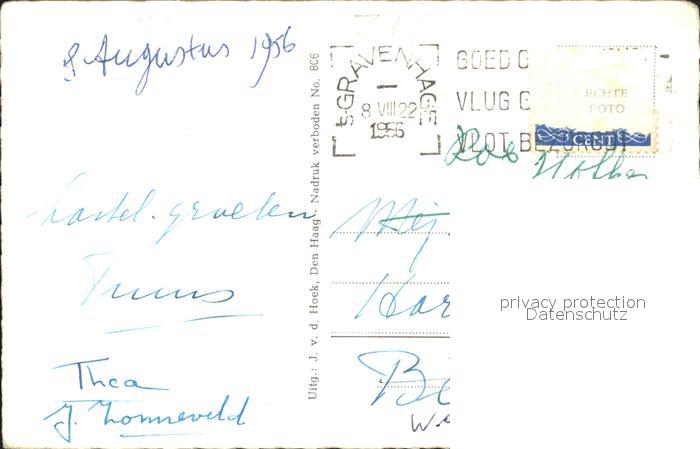 8 Augustus 1956
's-GRAVENHAGE
I
8 VIII 22
1956
GOED G
VLUG G
VLOT BEZORGD!
ECHTE
FOTO
CENT
Rob
hartel. groeten
Thea
J. Zonneveld
Uitg.: J. v. d. Hoek, Den Haag. Nadruk verboden No. 806
Mej.
Har
privacy protection
Datenschutz